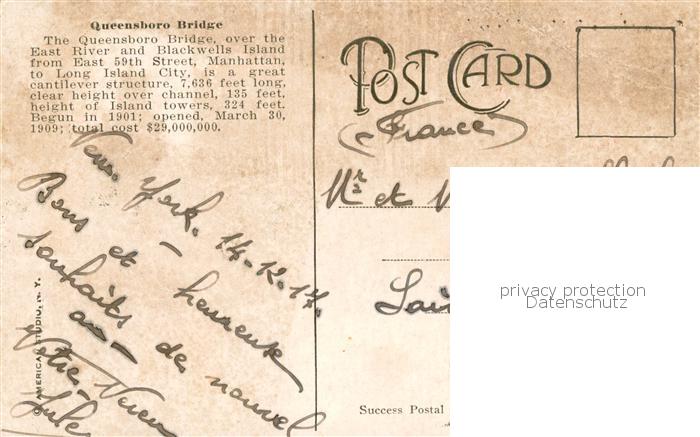 Queensboro Bridge
The Queensboro Bridge, over the
East River and Blackwells Island
from East 59th Street, Manhattan,
to Long Island City, is a great
cantilever structure, 7,636 feet long,
clear height over channel, 135 feet,
height of Island towers, 324 feet.
Begun in 1901; opened, March 30,
1909; total cost $29,000,000.
© AMERICAN STUDIO, N. Y.
York. 14-12-17.
Bons et heureux
souhaits de nouvel
an
Votre
Jule
POST CARD
(France)
Mr et
privacy protection
Datenschutz
Success Postal